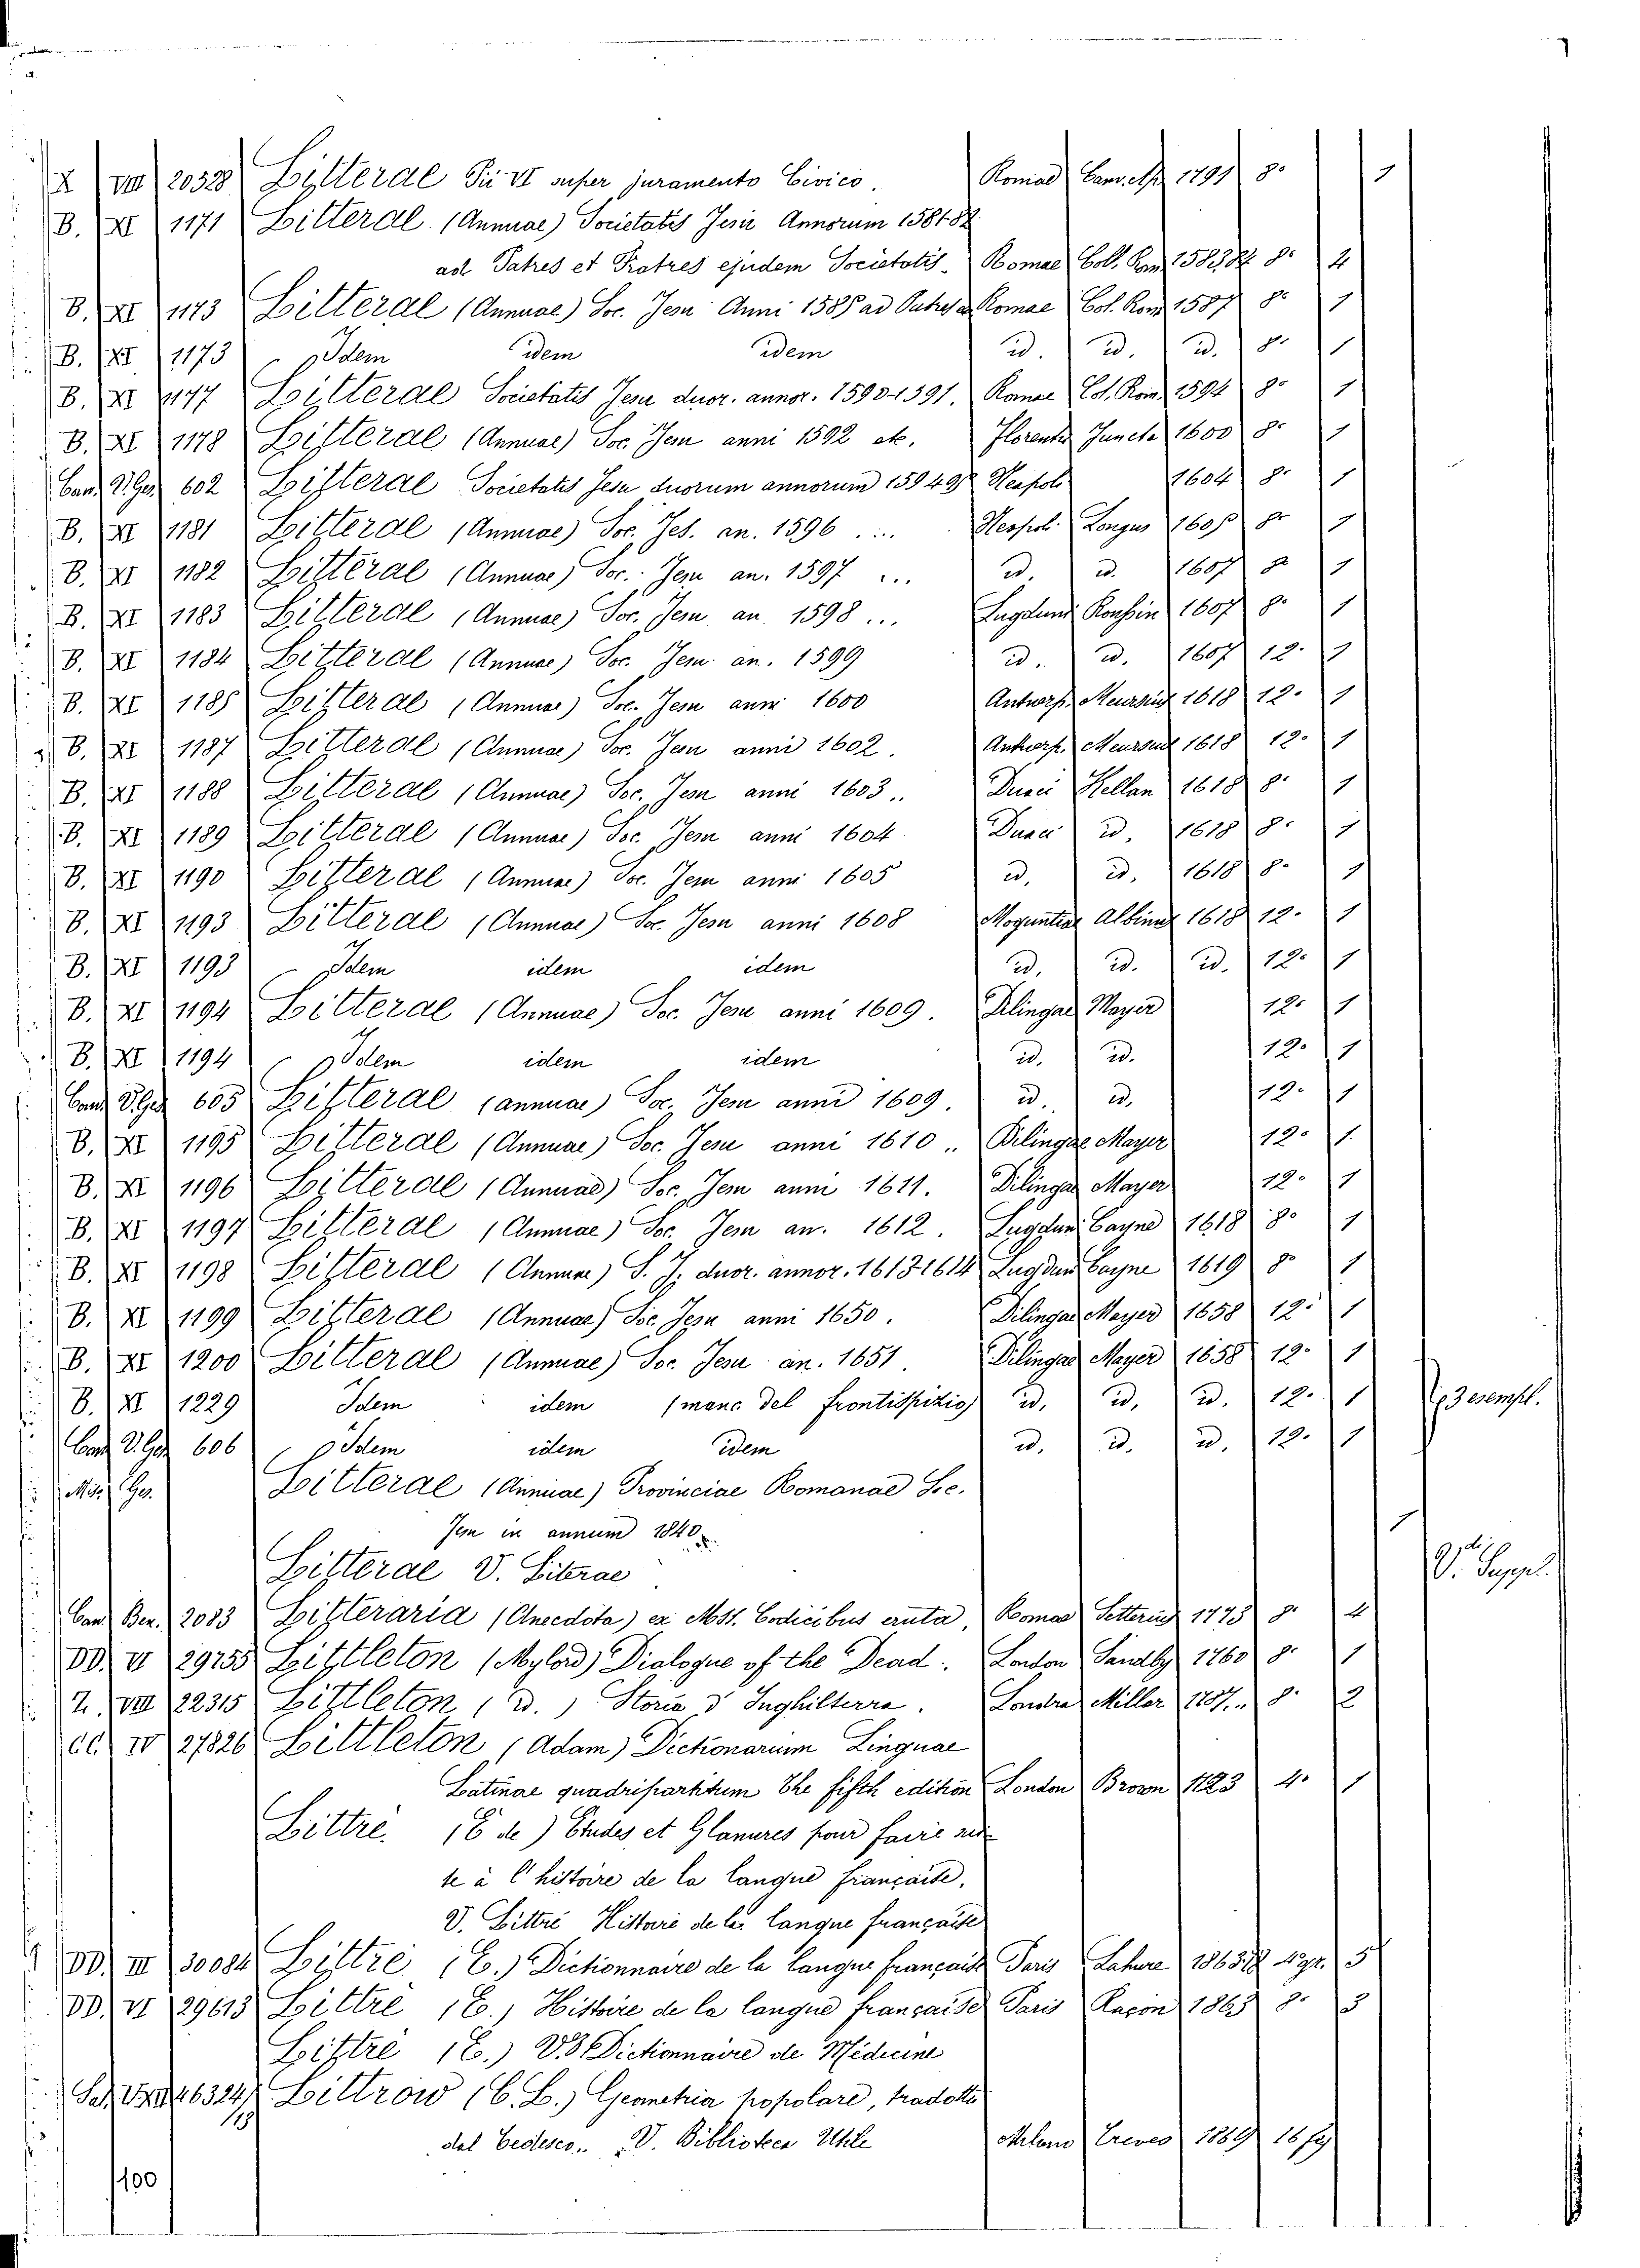 X VIII 20328 Litterae Pii VI super juramento Civico. Romae Cam. Ap. 1791 8º 1
B. XI 1171 Litterae (Annuae) Societatis Jesu Annorum 1581 82
ad Patres et Fratres ejusdem Societatis. Romae Col. Rom. 1583 84 8º 2
B. XI 1173 Litterae (Annuae) Soc. Jesu Anni 1585 ad Patres Romae Col. Rom. 1587 8º 1
B. XI 1173 Idem idem idem id. id. id. 8º 1
B. XI 1177 Litterae Societatis Jesu duor. annor. 1590-1591. Romae Col. Rom. 1594 8º 1
B. XI 1178 Litterae (Annuae) Soc. Jesu anni 1592 etc. Florentiae Juncta 1600 8º 1
Can. V. Ges. 602 Litterae Societatis Jesu duorum annorum 1594 95 Neapoli 1604 8º 1
B. XI 1181 Litterae (Annuae) Soc. Jes. an. 1596 ... Neapol. Longus 1605 8º 1
B. XI 1182 Litterae (Annuae) Soc. Jesu an. 1597 ... id. id. 1607 8º 1
B. XI 1183 Litterae (Annuae) Soc. Jesu an. 1598 ... Lugduni Roussin 1607 8º 1
B. XI 1184 Litterae (Annuae) Soc. Jesu an. 1599 id. id. 1607 12º 1
B. XI 1185 Litterae (Annuae) Soc. Jesu anni 1600 Antuerp. Meursius 1618 12º 1
B. XI 1187 Litterae (Annuae) Soc. Jesu anni 1602. Antuerp. Meursius 1618 12º 1
B. XI 1188 Litterae (Annuae) Soc. Jesu anni 1603.. Duaci Kellan 1618 8º 1
B. XI 1189 Litterae (Annuae) Soc. Jesu anni 1604 Duaci id. 1618 8º 1
B. XI 1190 Litterae (Annuae) Soc. Jesu anni 1605 id. id. 1618 8º 1
B. XI 1193 Litterae (Annuae) Soc. Jesu anni 1608 Moguntiae Albinus 1618 12º 1
B. XI 1193 Idem idem idem id. id. id. 12º 1
B. XI 1194 Litterae (Annuae) Soc. Jesu anni 1609. Dilingae Mayer 12º 1
B. XI 1194 Idem idem idem id. id. 12º 1
Can. V. Ges. 605 Litterae (annuae) Soc. Jesu anni 1609. id. id. 12º 1
B. XI 1195 Litterae (Annuae) Soc. Jesu anni 1610 .. Dilingae Mayer 12º 1
B. XI 1196 Litterae (Annuae) Soc. Jesu anni 1611. Dilingae Mayer 12º 1
B. XI 1197 Litterae (Annuae) Soc. Jesu an. 1612. Lugduni Cayne 1618 8º 1
B. XI 1198 Litterae (Annuae) S. J. duor. annor. 1613 1614 Lugduni Cayne 1619 8º 1
B. XI 1199 Litterae (Annuae) Soc. Jesu anni 1650. Dilingae Mayer 1658 12º 1
B. XI 1200 Litterae (Annuae) Soc. Jesu an. 1651. Dilingae Mayer 1658 12º 1
B. XI 1229 Idem idem (manc del frontispizio) id. id. id. 12º 1 3 esempl.
Can. V. Ges. 606 Idem idem idem id. id. id. 12º 1
Mss. Ges. Litterae (Annuae) Provinciae Romanae Soc.
Jesu in annum 1840 1
Litterae V. Literae V. Suppl.
Can. Ben. 2083 Litteraria (Anecdota) ex Mss. Codicibus eruta, Romae Setterius 1773 8º 4
DD. VI 29255 Littleton (Mylord) Dialogue of the Dead. London Sandby 1760 8º 1
Z. VIII 22315 Littleton (id.) Storia d'Inghilterra. Londra Miller 1787.. 8º 2
CC. IV 27826 Littleton (Adam) Dictionarium Linguae
Latinae quadripartitum The fifth edition London Brown 1723 4º 1
Littré. (E de) Etudes et Glanures pour faire sui-
te à l'histoire de la langue française,
V. Littré Histoire de la langue française
DD. III 30084 Littré (E.) Dictionnaire de la langue française Paris Lahure 1863 72 4º gr. 5
DD. VI 29613 Littré (E.) Histoire de la langue française Paris Raçon 1863 8º 2
Littré (E.) V. Dictionnaire de Médecine
46324/13 Littrow (C. L.) Geometria popolare, tradotta
dal Tedesco.. V. Biblioteca Utile Milano Treves 1869 16
100